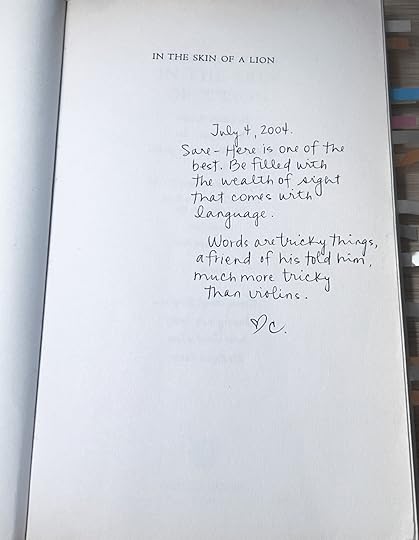 IN THE SKIN OF A LION
July 4, 2004.
Sare- Here is one of the
best. Be filled with
the wealth of sight
that comes with
language.
Words are tricky things,
a friend of his told him,
much more tricky
than violins.
♡C.